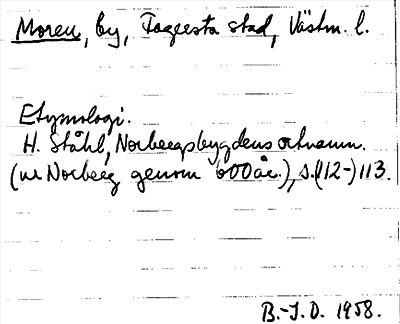 Moren, by, Fagersta stad, Västm. l.
Etymologi.
H. Ståhl, Norbergsbygdens ortnamn.
(ur Norberg genom 600 år.), s.(112-)113.
B.-J.D. 1958.